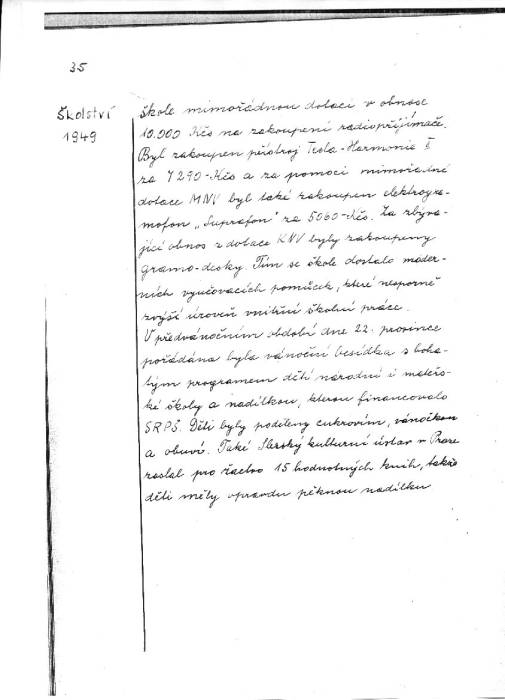 35
Školství
1949
škole mimořádnou dotaci v obnose
10.000 Kčs na zakoupení radiopřijímače.
Byl zakoupen přístroj Tesla-Harmonie I
za 7290-Kčs a za pomoci mimořádné
dotace MNV byl také zakoupen elektrogra-
mofon „Suprafon" za 5060-Kčs. Za zbýva-
jící obnos z dotace KNV byly zakoupeny
gramo-desky. Tím se škole dostalo moder-
ních vyučovacích pomůcek, které nesporně
zvýší úroveň vnitřní školní práce.
V předvánočním období dne 22. prosince
pořádána byla vánoční besídka s boha-
tým programem dětí národní i mateřs-
ké školy a nadílkou, kterou financovalo
SRPŠ. Děti byly poděleny cukrovím, vánočkou
a obuví. Také Slezský kulturní ústav v Praze
zaslal pro žactvo 15 hodnotných knih, takže
děti měly opravdu pěknou nadílku